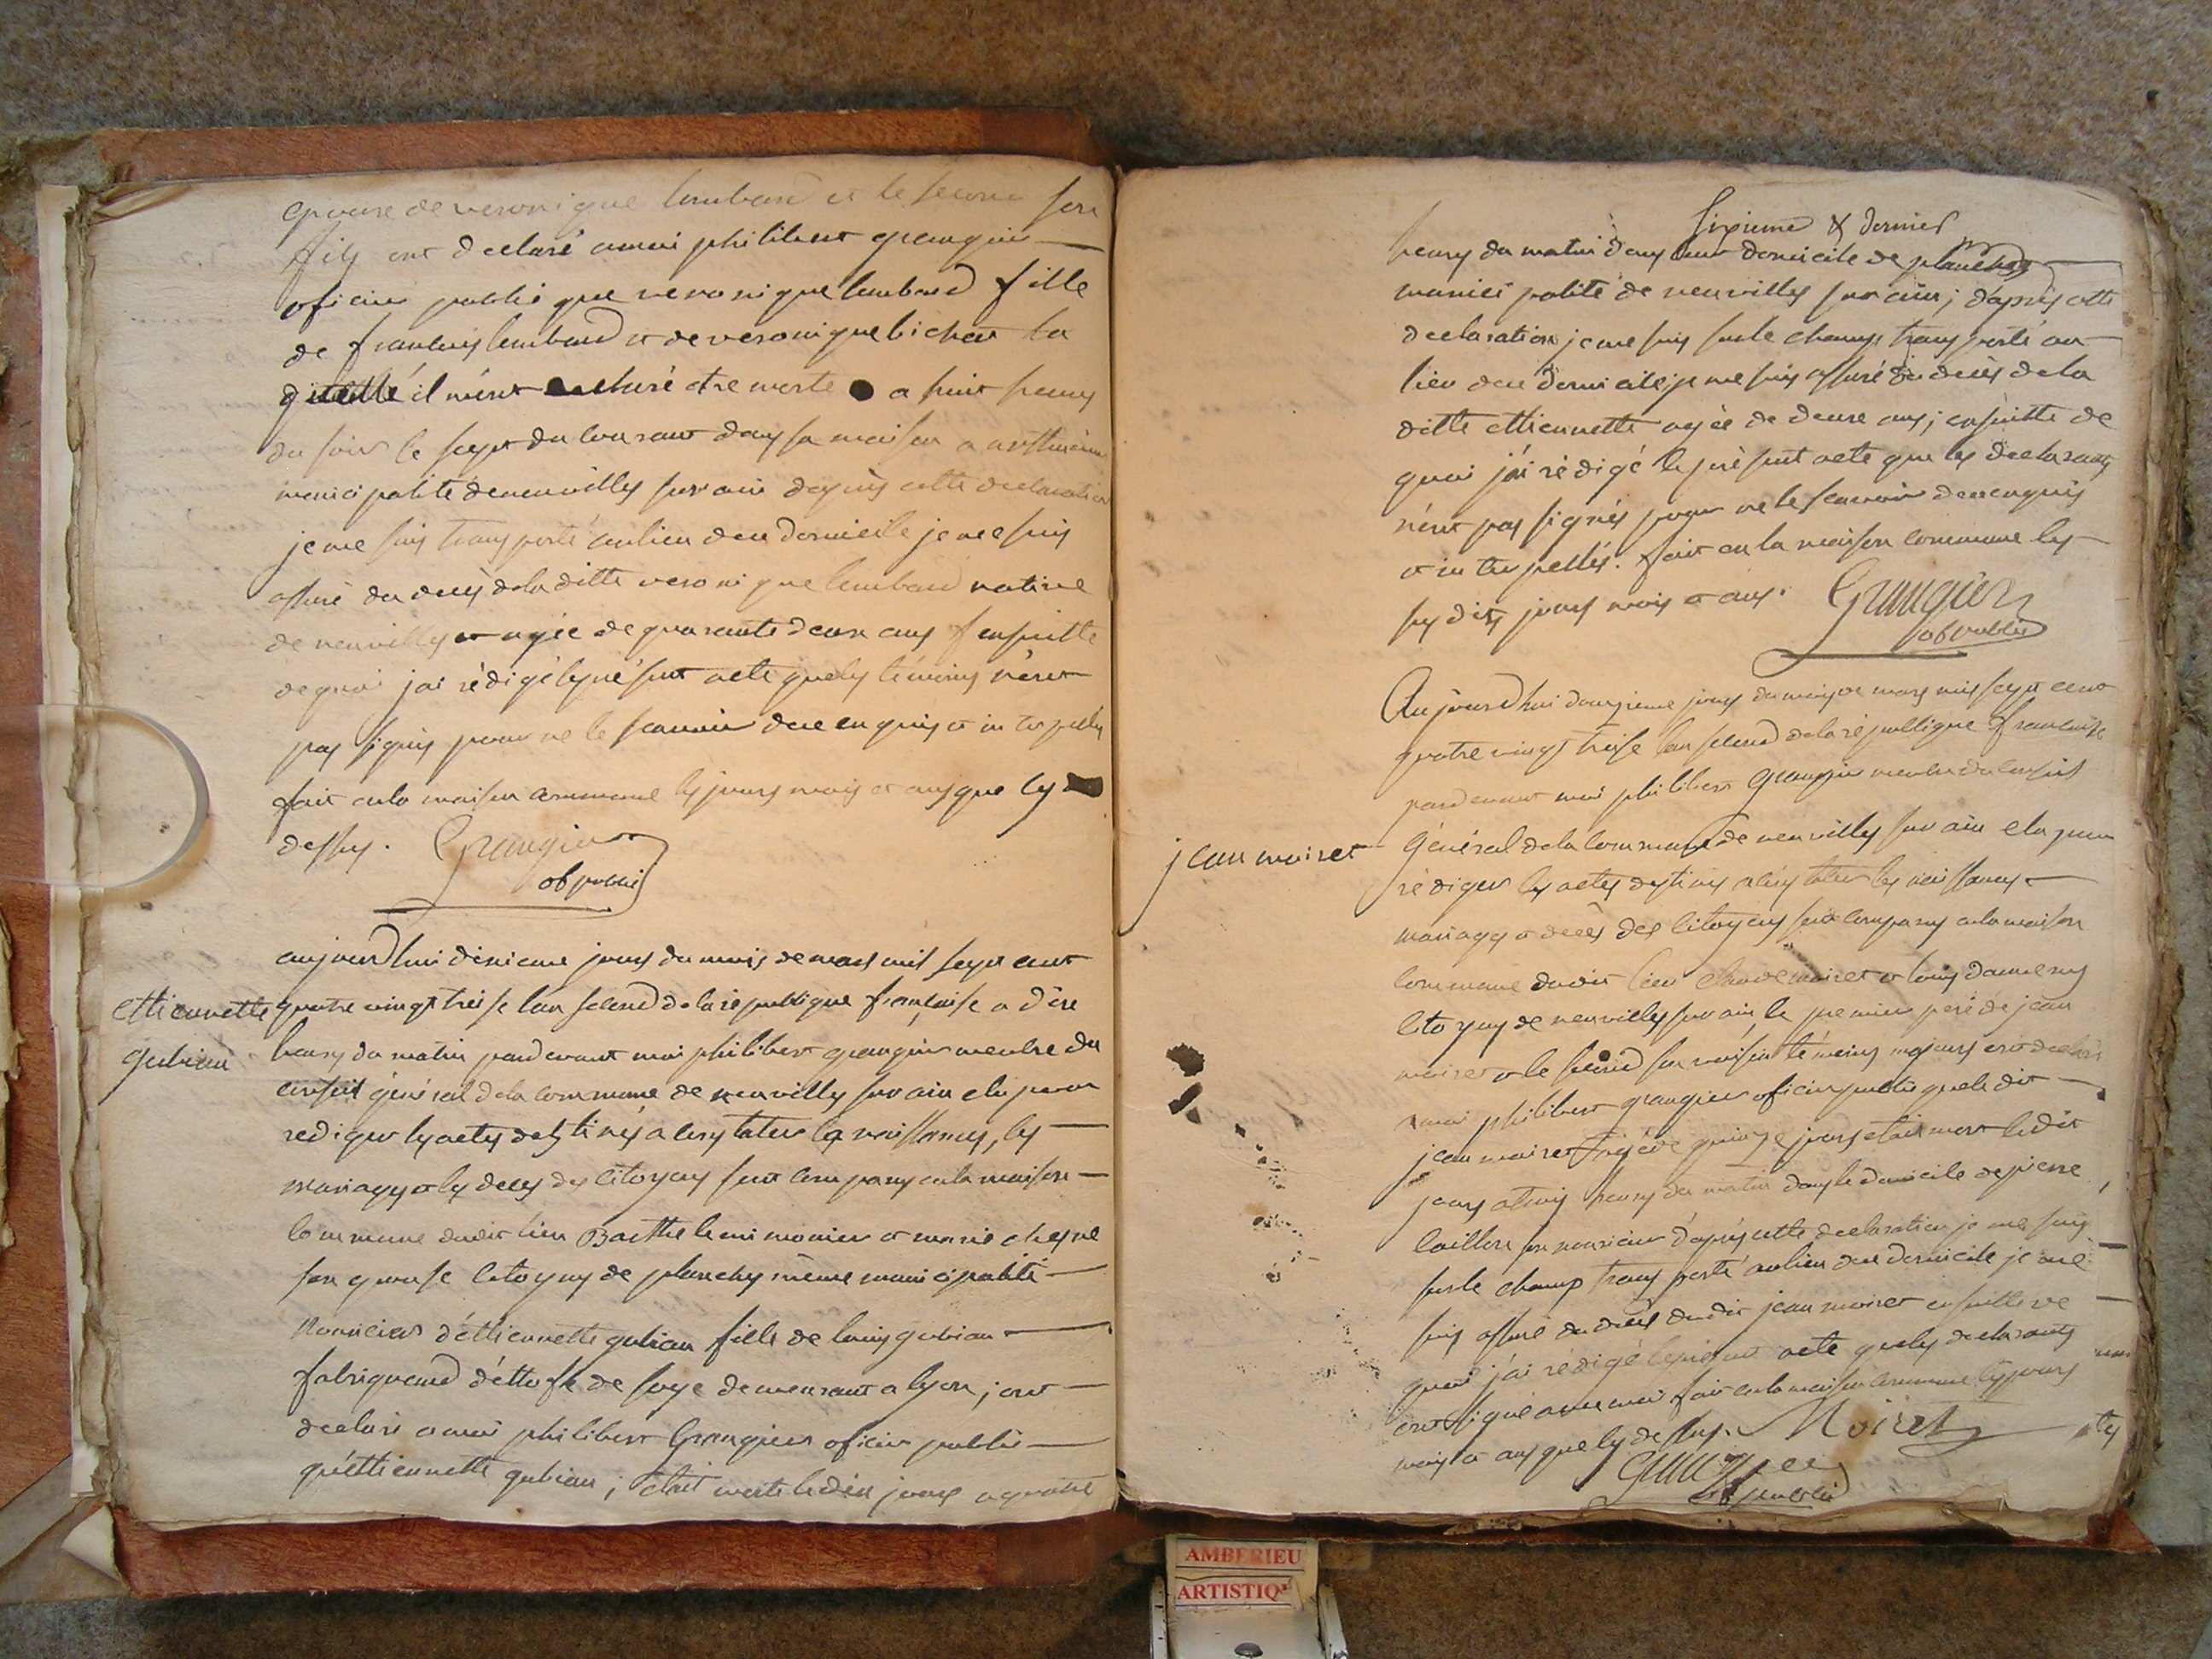 epouse de veronique lombard et le second son
fils ont declaré a moi philibert grangier
oficier public que veronique lombard fille
de francois lombard et de veronique bichat la
ditte il m'ont declaré etre morte a huit heures
du soir le sept du courant dans sa maison a
municipalité de neuvilles sur ain dapres cette declaration
je me suis transporté au lieu dau domicile je me suis
assuré du deces de la ditte veronique lombard native
de neuvilles et agée de quarante deux ans ensuitte
de quoi jai rédigé le présent acte que les témoins n'ont
pas signés pour ne le scavoir de ce enquis et interpellés
fait en la maison commune les jours mois et ans que cy
dessus. Grangier
of public
aujourdhui dixieme jours du mois de mars mil sept cent
ettiennette
gubian
quatre vingt treise lan second de la république française a dix
heures du matin pardevant moi philibert grangier membre du
conseil général de la commune de neuvilles sur ain elu pour
rediger les actes destinés a constater les naissances, les
mariages et les deces des citoyens sont comparus en la maison
commune dudit lieu Barthelemi monier et marie
son epouse citoyens de planches même municipalité
nouricier d'ettiennette gubian fille de louis gubian
fabriquand d'ettoffe de soye demeurant a lyon ; ont
declaré a moi philibert Grangier oficier public
qu'ettiennette gubian ; était morte le dix jours a quatre
sixieme & dernier
heures du matin dans leur domicile de planches
municipalité de neuvilles sur ain ; d'après cette
declaration je me suis sur le champs transporté au
lieu dau domicile je me suis assuré du décès de la
ditte ettiennette agée de deux ans ; ensuitte de
quoi j'ai rédigé le présent acte que les declarants
n'ont pas signés pour ne le scavoir de ce enquis
et interpellés. fait en la maison commune les
susdits jours mois et ans. Grangier
of public
Aujourdhui douzieme jours du mois de mars mil sept cent
quatre vingt treise lan second de la république francaise
pardevant moi philibert grangier membre du conseil
jean moiret
général de la commune de neuvilles sur ain elu pour
rédiger les actes destinés a constater les naissances
mariages et décès des citoyens sont comparus en la maison
commune dudit lieu claude moiret et louis
citoyens de neuvilles sur ain, le premier pere de jean
moiret et le second son voisin témoins majeurs ont declaré
a moi philibert grangier oficier public que le dit
jean moiret agé de quinze jours etait mort ledit
jours a trois heures du matin dans le domicile de pierre
son nouricier d'après cette declaration je me suis
sur le champ transporté au lieu dau domicile je me
suis assuré du décès dudit jean moiret ensuitte de
quoi j'ai rédigé le présent acte que les declarants
ont signé avec moi fait en la maison commune les jours
mois et ans que cy dessus. Moiret
Grangier
of public
AMBERIEU
ARTISTIQ